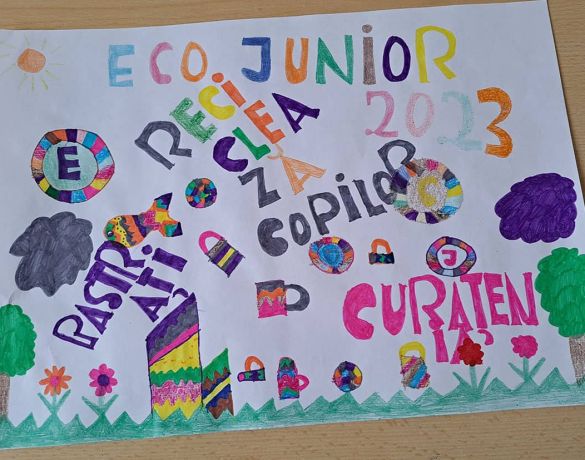 ECO JUNIOR
2023
RECICLEAZĂ
COPILOR
E
C
J
PASTRAȚI
CURATENIA